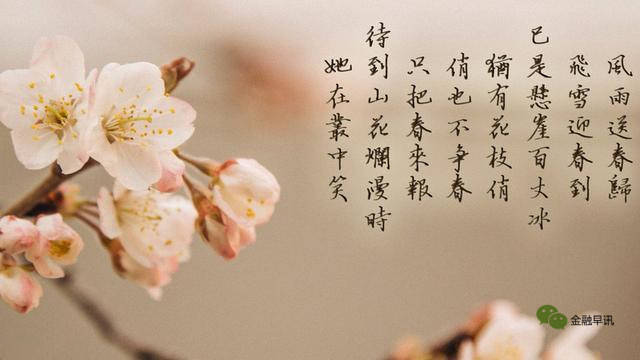 風雨送春歸
飛雪迎春到
已是懸崖百丈冰
猶有花枝俏
俏也不爭春
只把春來報
待到山花爛漫時
她在叢中笑
金融早讯